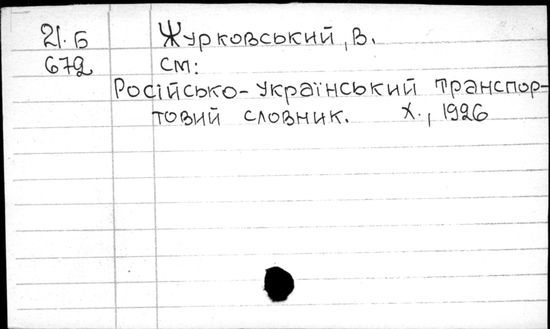 21. Б Журковський, В.
672 см:
Російсько-Український транспор-
товий словник. Х., 1926